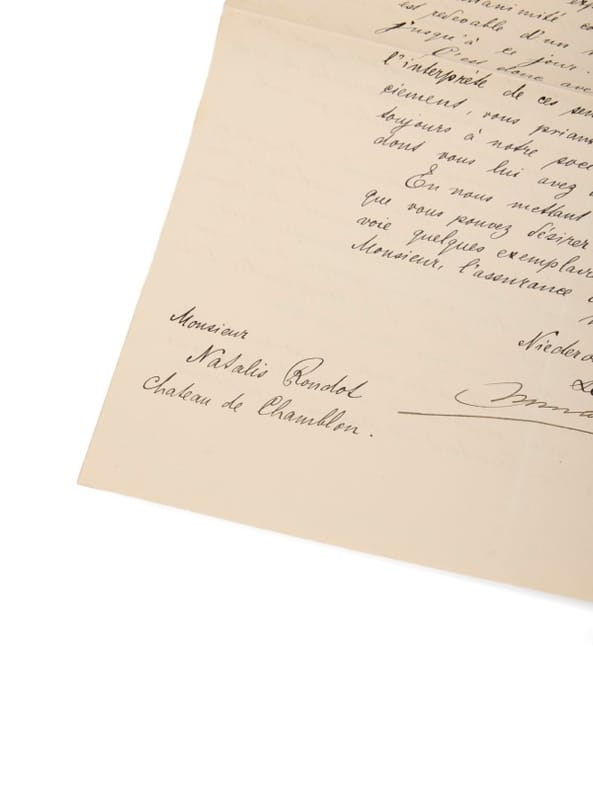 unanimité
est redevable d'un
jusqu'à ce jour.
C'est donc avec
l'interprète de ces
ciement, vous priant
toujours à notre
dont vous lui avez
En nous mettant
que vous pouvez désirer
voie quelques exemplair
Monsieur, l'assurance
Nieder
Monsieur
Natalis Rondot
Chateau de Chamblon.